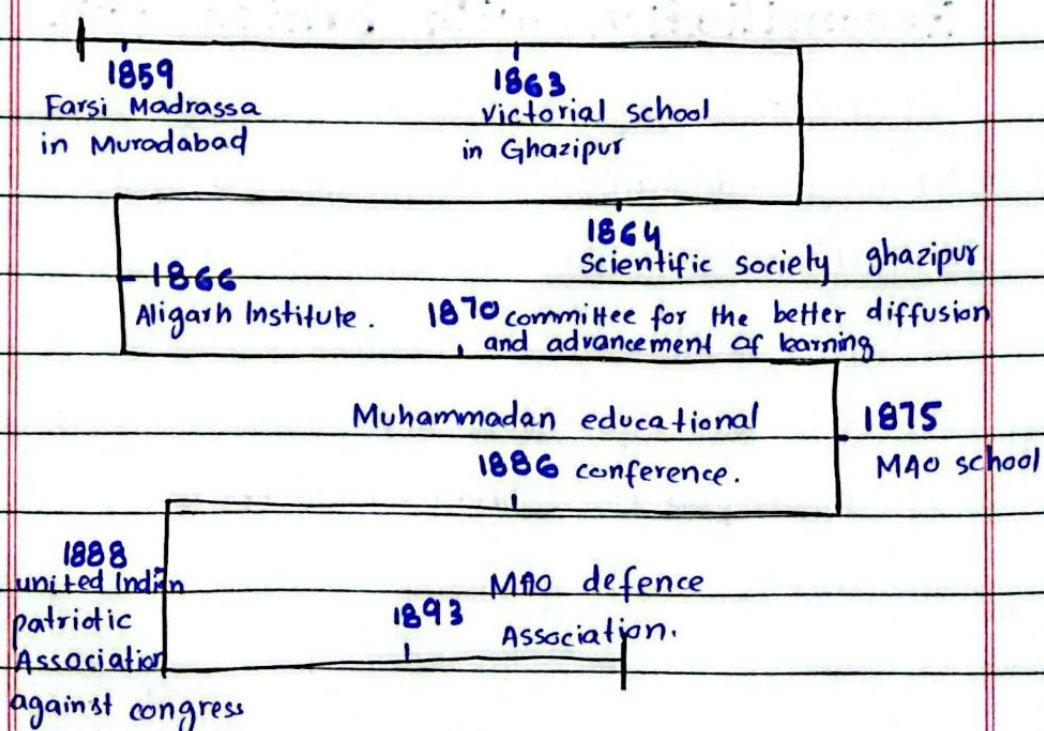 1859
Farsi Madrassa
in Muradabad
1863
victorial school
in Ghazipur
1864
scientific society ghazipur
1866
Aligarh Institute.
1870 committee for the better diffusion
and advancement of learning
1875
MAO school
Muhammadan educational
1886 conference.
1888
united Indian
patriotic
Association
against congress
1893
MAO defence
Association.